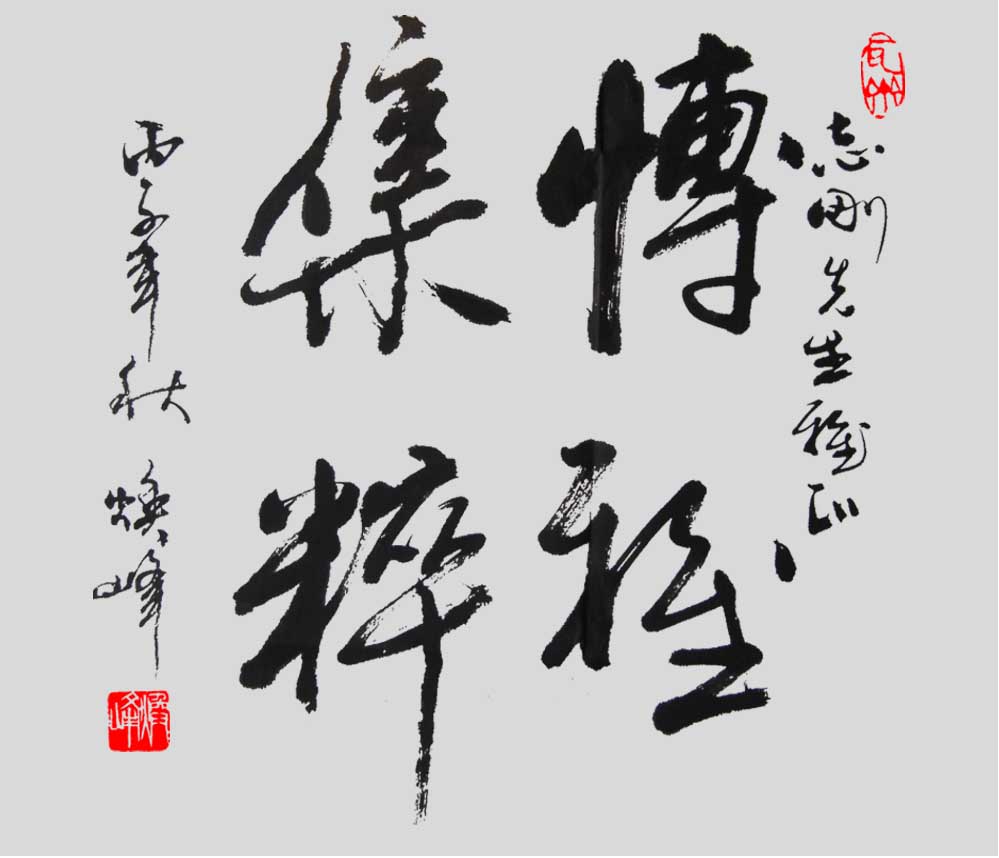 志刚先生雅训
博雅
集粹
丙子年秋 焕峰
焕峰